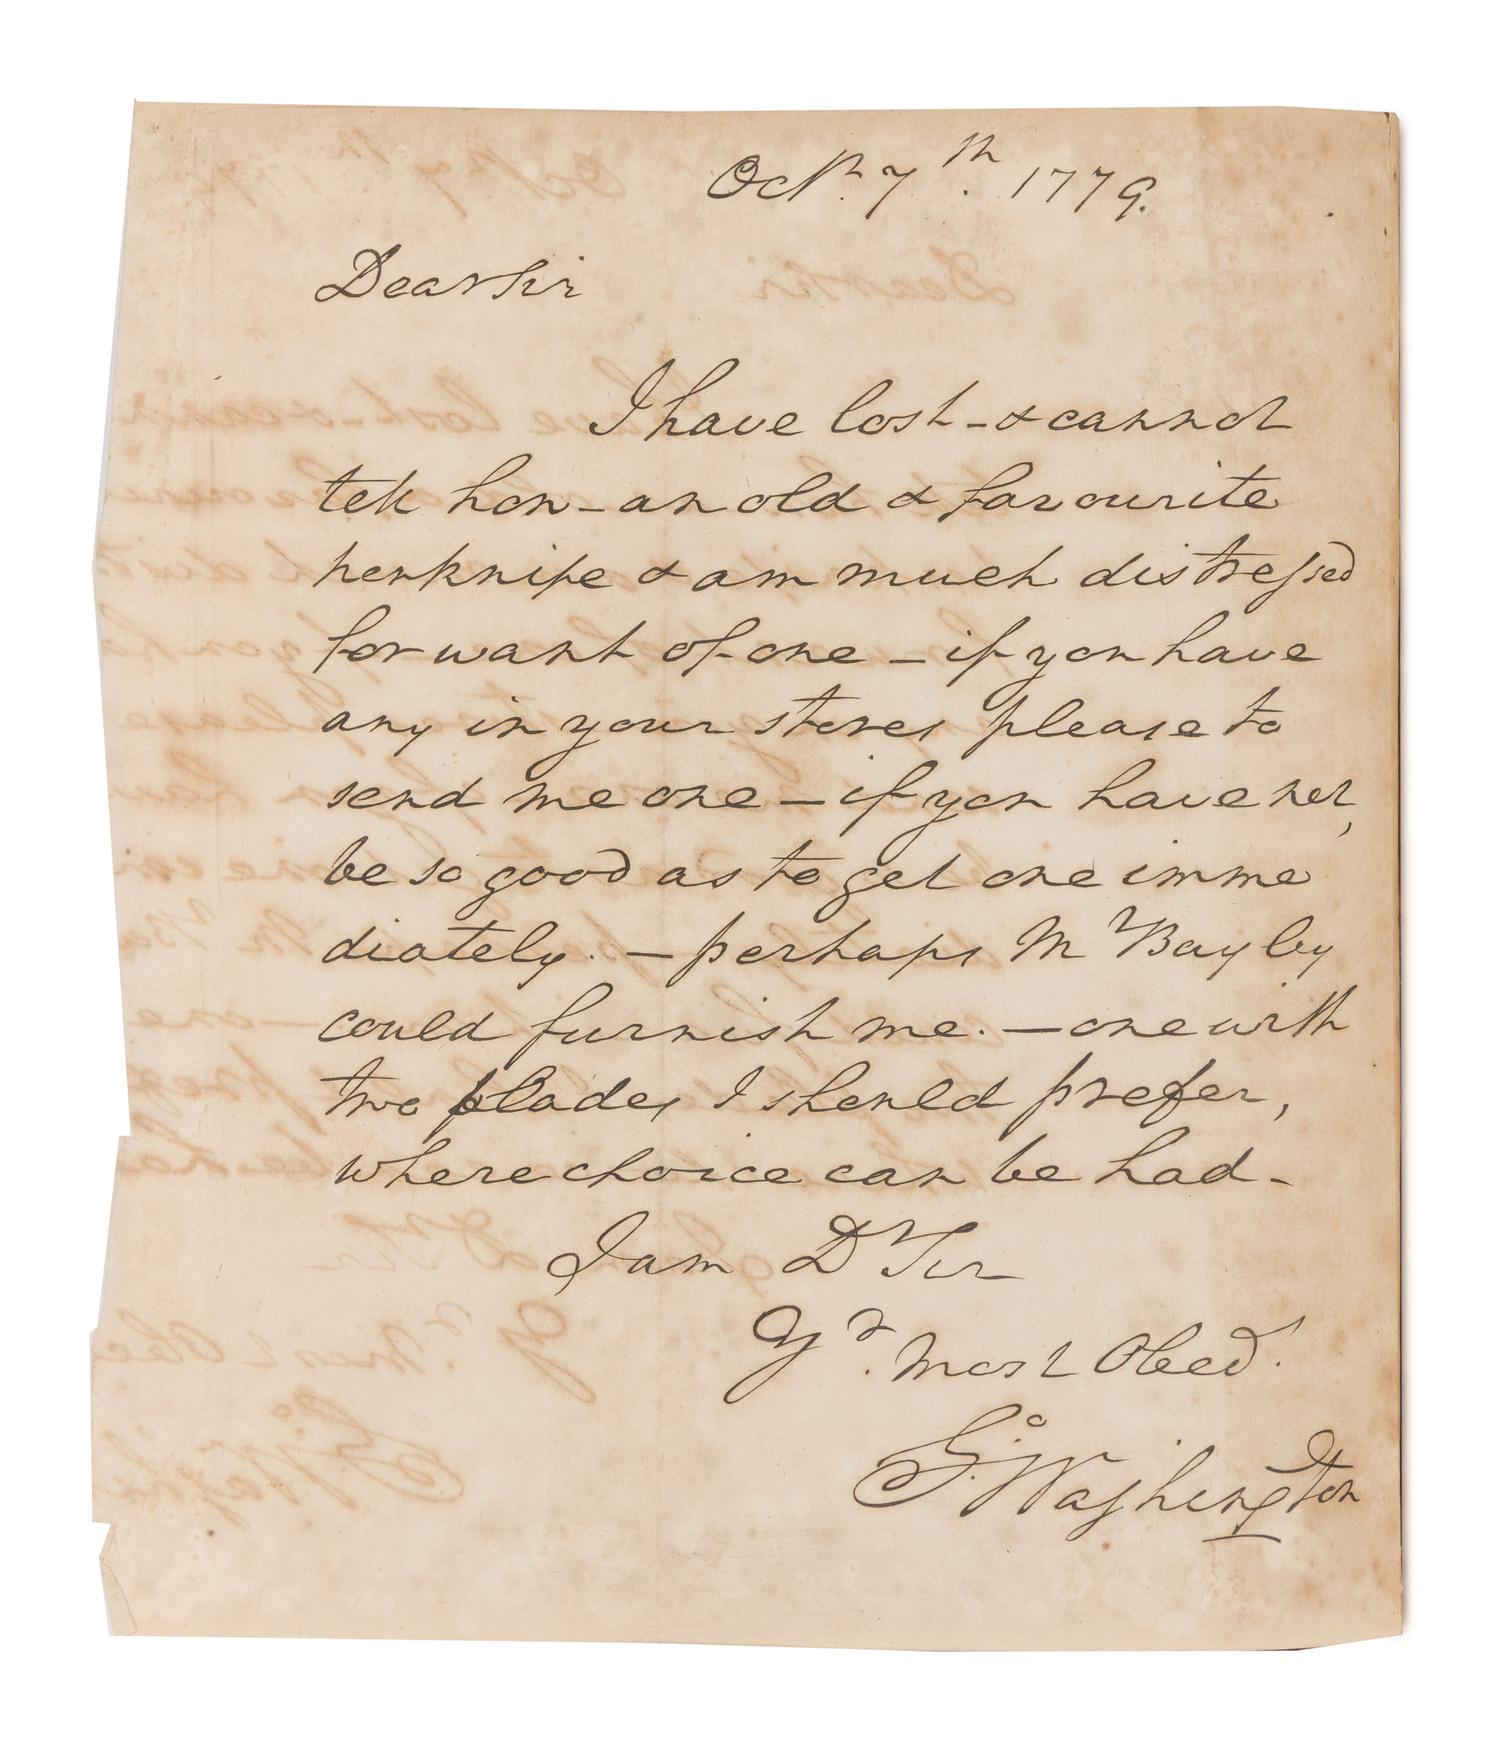 Octr. 7th. 1779.
Dear Sir
I have lost - & cannot
tell how - an old & favourite
penknife & am much distressed
for want of one - if you have
any in your stores please to
send me one - if you have not,
be so good as to get one imme
diately. - perhaps Mr Bayley
could furnish me. - one with
two blades I should prefer,
where choice can be had -
I am Dr Sir
Yr. Most Obed.
Go: Washington